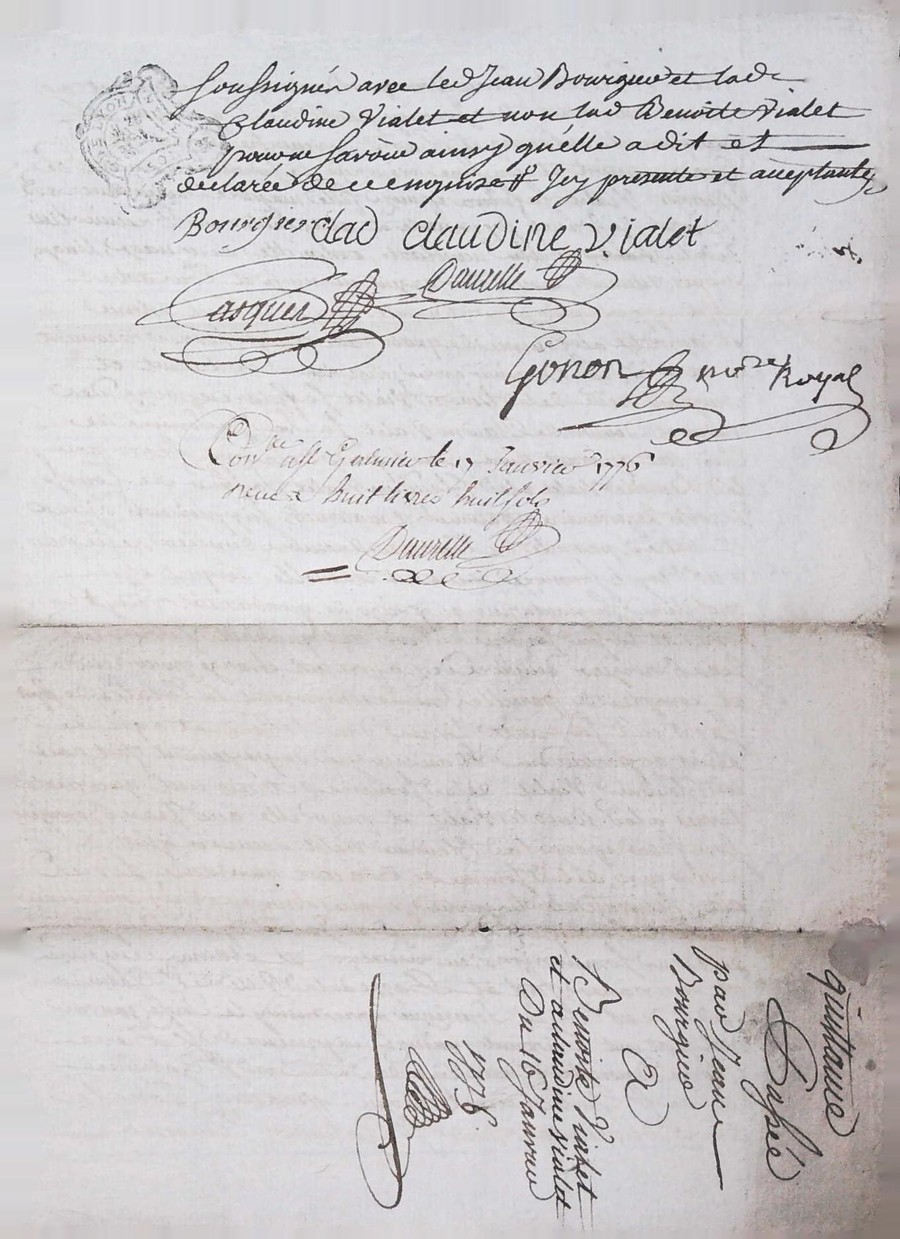 soussignés avec led Jean Bourgier et lad
Claudine Vialet et non lad Benoite Vialet
pour ne savoir ainsy qu'elle a dit et
declarée de ce enquise #. Icy presente et acceptante,
Bourgier lad claudine vialet
Daurelle
Gonon no.re Royal
Con.lé à St Galmier le 17 Janvier 1776
receu huit livres huit sols
Daurelle
quittance
passée
par Jean
Bourgier
A
Benoite Vialet
et a claudine vialet
Du 16 Janvier
1776.